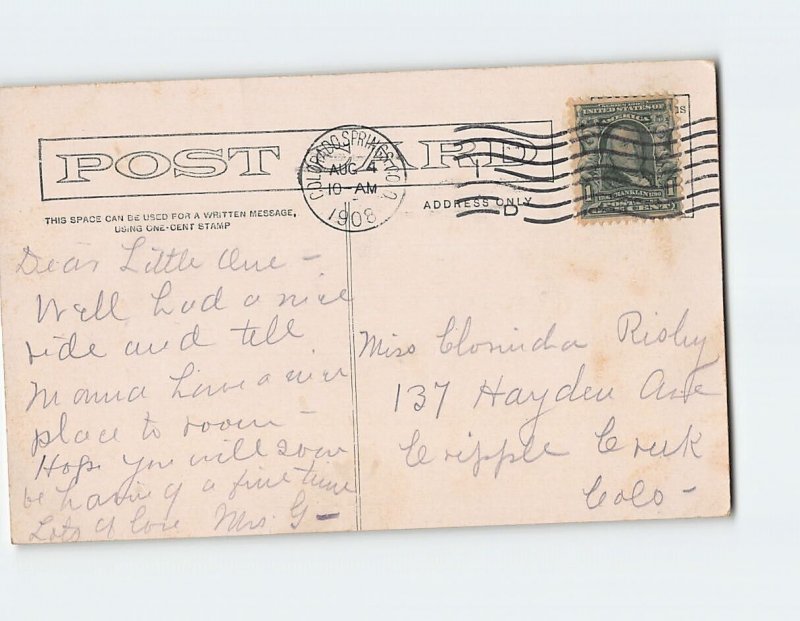 POST CARD
COLORADO SPRINGS, COLO.
AUG 4
10-AM
1908
D
UNITED STATES OF
AMERICA
FRANKLIN
1 CENT
THIS SPACE CAN BE USED FOR A WRITTEN MESSAGE,
USING ONE-CENT STAMP
ADDRESS ONLY
Dear Little One –
Well had a nice
ride and tell
Mama have a nice
place to room –
Hope you will soon
be having a fine time
Lots of love Mrs. G –
Miss Risby
137 Hayden Ave
Cripple Creek
Colo –